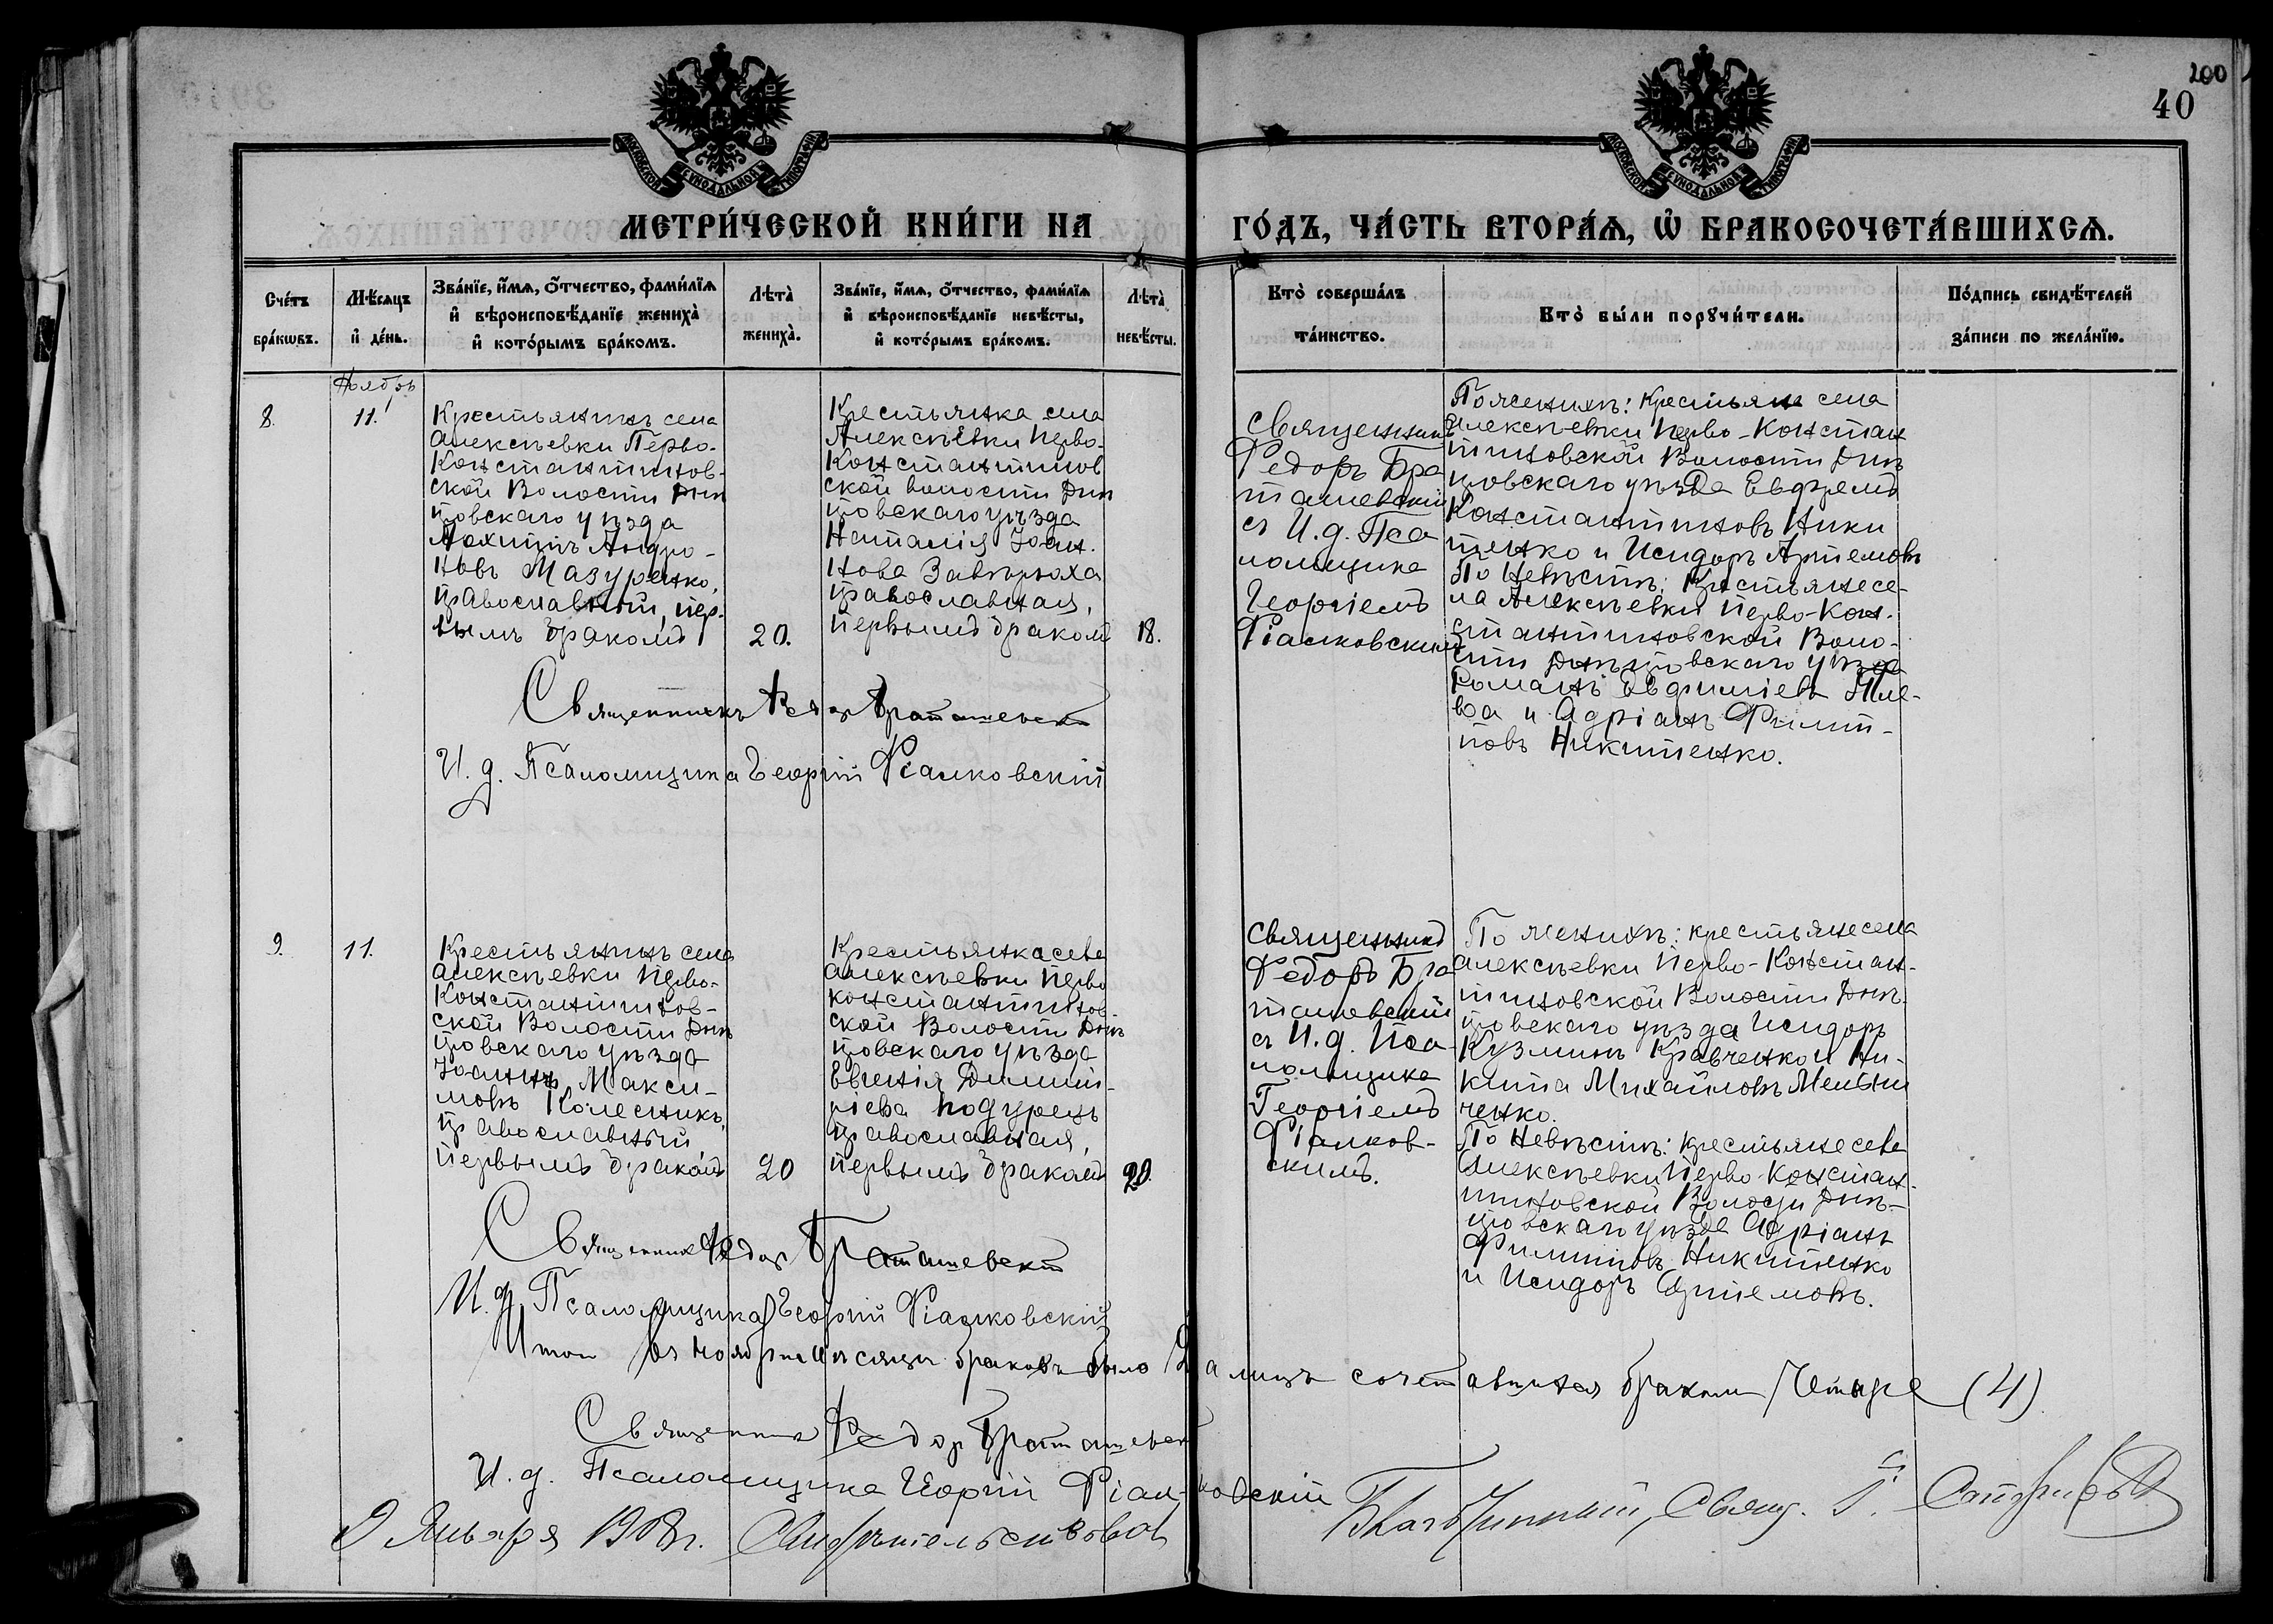 200
40
МОСКОВСКОЙ СУНОДАЛЬНОЙ ТИПОГРАФІИ
МОСКОВСКОЙ СУНОДАЛЬНОЙ ТИПОГРАФІИ
МЕТРИ́ЧЕСКОЙ КНИ́ГИ НА
ГО́ДЪ, ЧА́СТЬ ВТОРА́Ѧ, Ѿ БРАКОСОЧЕТА́ВШИХСѦ.
Сче́тъ
бра́кωвъ.
Мѣ́сяцъ
и҆ де́нь.
Зва́нїе, и҆́мѧ, ѻ҆́тчество, фами́лїѧ
и҆ вѣроисповѣ́данїе жениха̀
и҆ кото́рымъ бра́комъ.
Лѣта̀
жениха̀.
Зва́нїе, и҆́мѧ, ѻ҆́тчество, фами́лїѧ
и҆ вѣроисповѣ́данїе невѣ́сты,
и҆ кото́рымъ бра́комъ.
Лѣта̀
невѣ́сты.
Кто̀ соверша́лъ
та́инство.
Кто̀ бы́ли порꙋчи́тели.
По́дпись свидѣ́телей
за́писи по жела́нїю.
Ноябрь
8.
11.
Крестьянинъ села
Алексѣевки Перво-
Константинов-
ской Волости Днѣ
провскаго уѣзда
Андро-
новъ Мазуренко,
православный, пер-
вымъ бракомъ
20.
Крестьянка села
Алексѣевки Перво-
Константинов
ской волости Днѣ
провскаго уѣзда
Наталія Іоан-
нова Завѣрюха
православная,
первымъ бракомъ
18.
Священникъ
Федоръ Бра
ташевскій
съ И. д. Пса
ломщика
Георгіемъ
Фіалковскимъ
По женихѣ: крестьяне села
Алексѣевки Перво-Констан
тиновской Волости Днѣ
провскаго уѣзда Евфремъ
Константиновъ Ники
тенко и Исидоръ Артемовъ
По Невѣстѣ: Крестьяне се-
ла Алексѣевки Перво-Кон-
стантиновской Воло-
сти Днѣпровскаго уѣзда
Романъ Евфиміевъ
и Адріанъ Филип-
повъ Никитенко.
Священникъ Федоръ Браташевскій
И. д. Псаломщика Георгій Фіалковскій
9.
11.
Крестьянинъ села
Алексѣевки Перво-
Константинов-
ской Волости Днѣ
провскаго уѣзда
Іоаннъ Макси-
мовъ Колесникъ,
православный
первымъ бракомъ
20
Крестьянка села
Алексѣевки Перво
константинов-
ской Волости Днѣ
провскаго уѣзда
Евгенія Димит-
ріева Подурецъ
православная,
первымъ бракомъ
20.
Священникъ
Федоръ Бра
ташевскій
съ И. д. Пса-
ломщика
Георгіемъ
Фіалков-
скимъ.
По женихѣ: крестьяне села
Алексѣевки Перво-Констан-
тиновской Волости Днѣ-
провскаго уѣзда Исидоръ
Кузминъ Кравченко и Ни-
кита Михайловъ Мельни
ченко.
По Невѣстѣ: крестьяне села
Алексѣевки Перво-Констан-
тиновской Волости Днѣ-
провскаго уѣзда Адріанъ
Филиповъ Никитенко
и Исидоръ Артемовъ.
Священникъ Федоръ Браташевскій
И. д. Псаломщика Георгій Фіалковскій
Итого въ ноябрѣ мѣсяцѣ браковъ было 2 а лицъ сочетавшихся бракомъ четыре (4)
Священникъ Федоръ Браташевскій
И. д. Псаломщика Георгій Фіалковскій
Января 1908 г. Свидѣтельствовалъ Благочинный, Свящ.